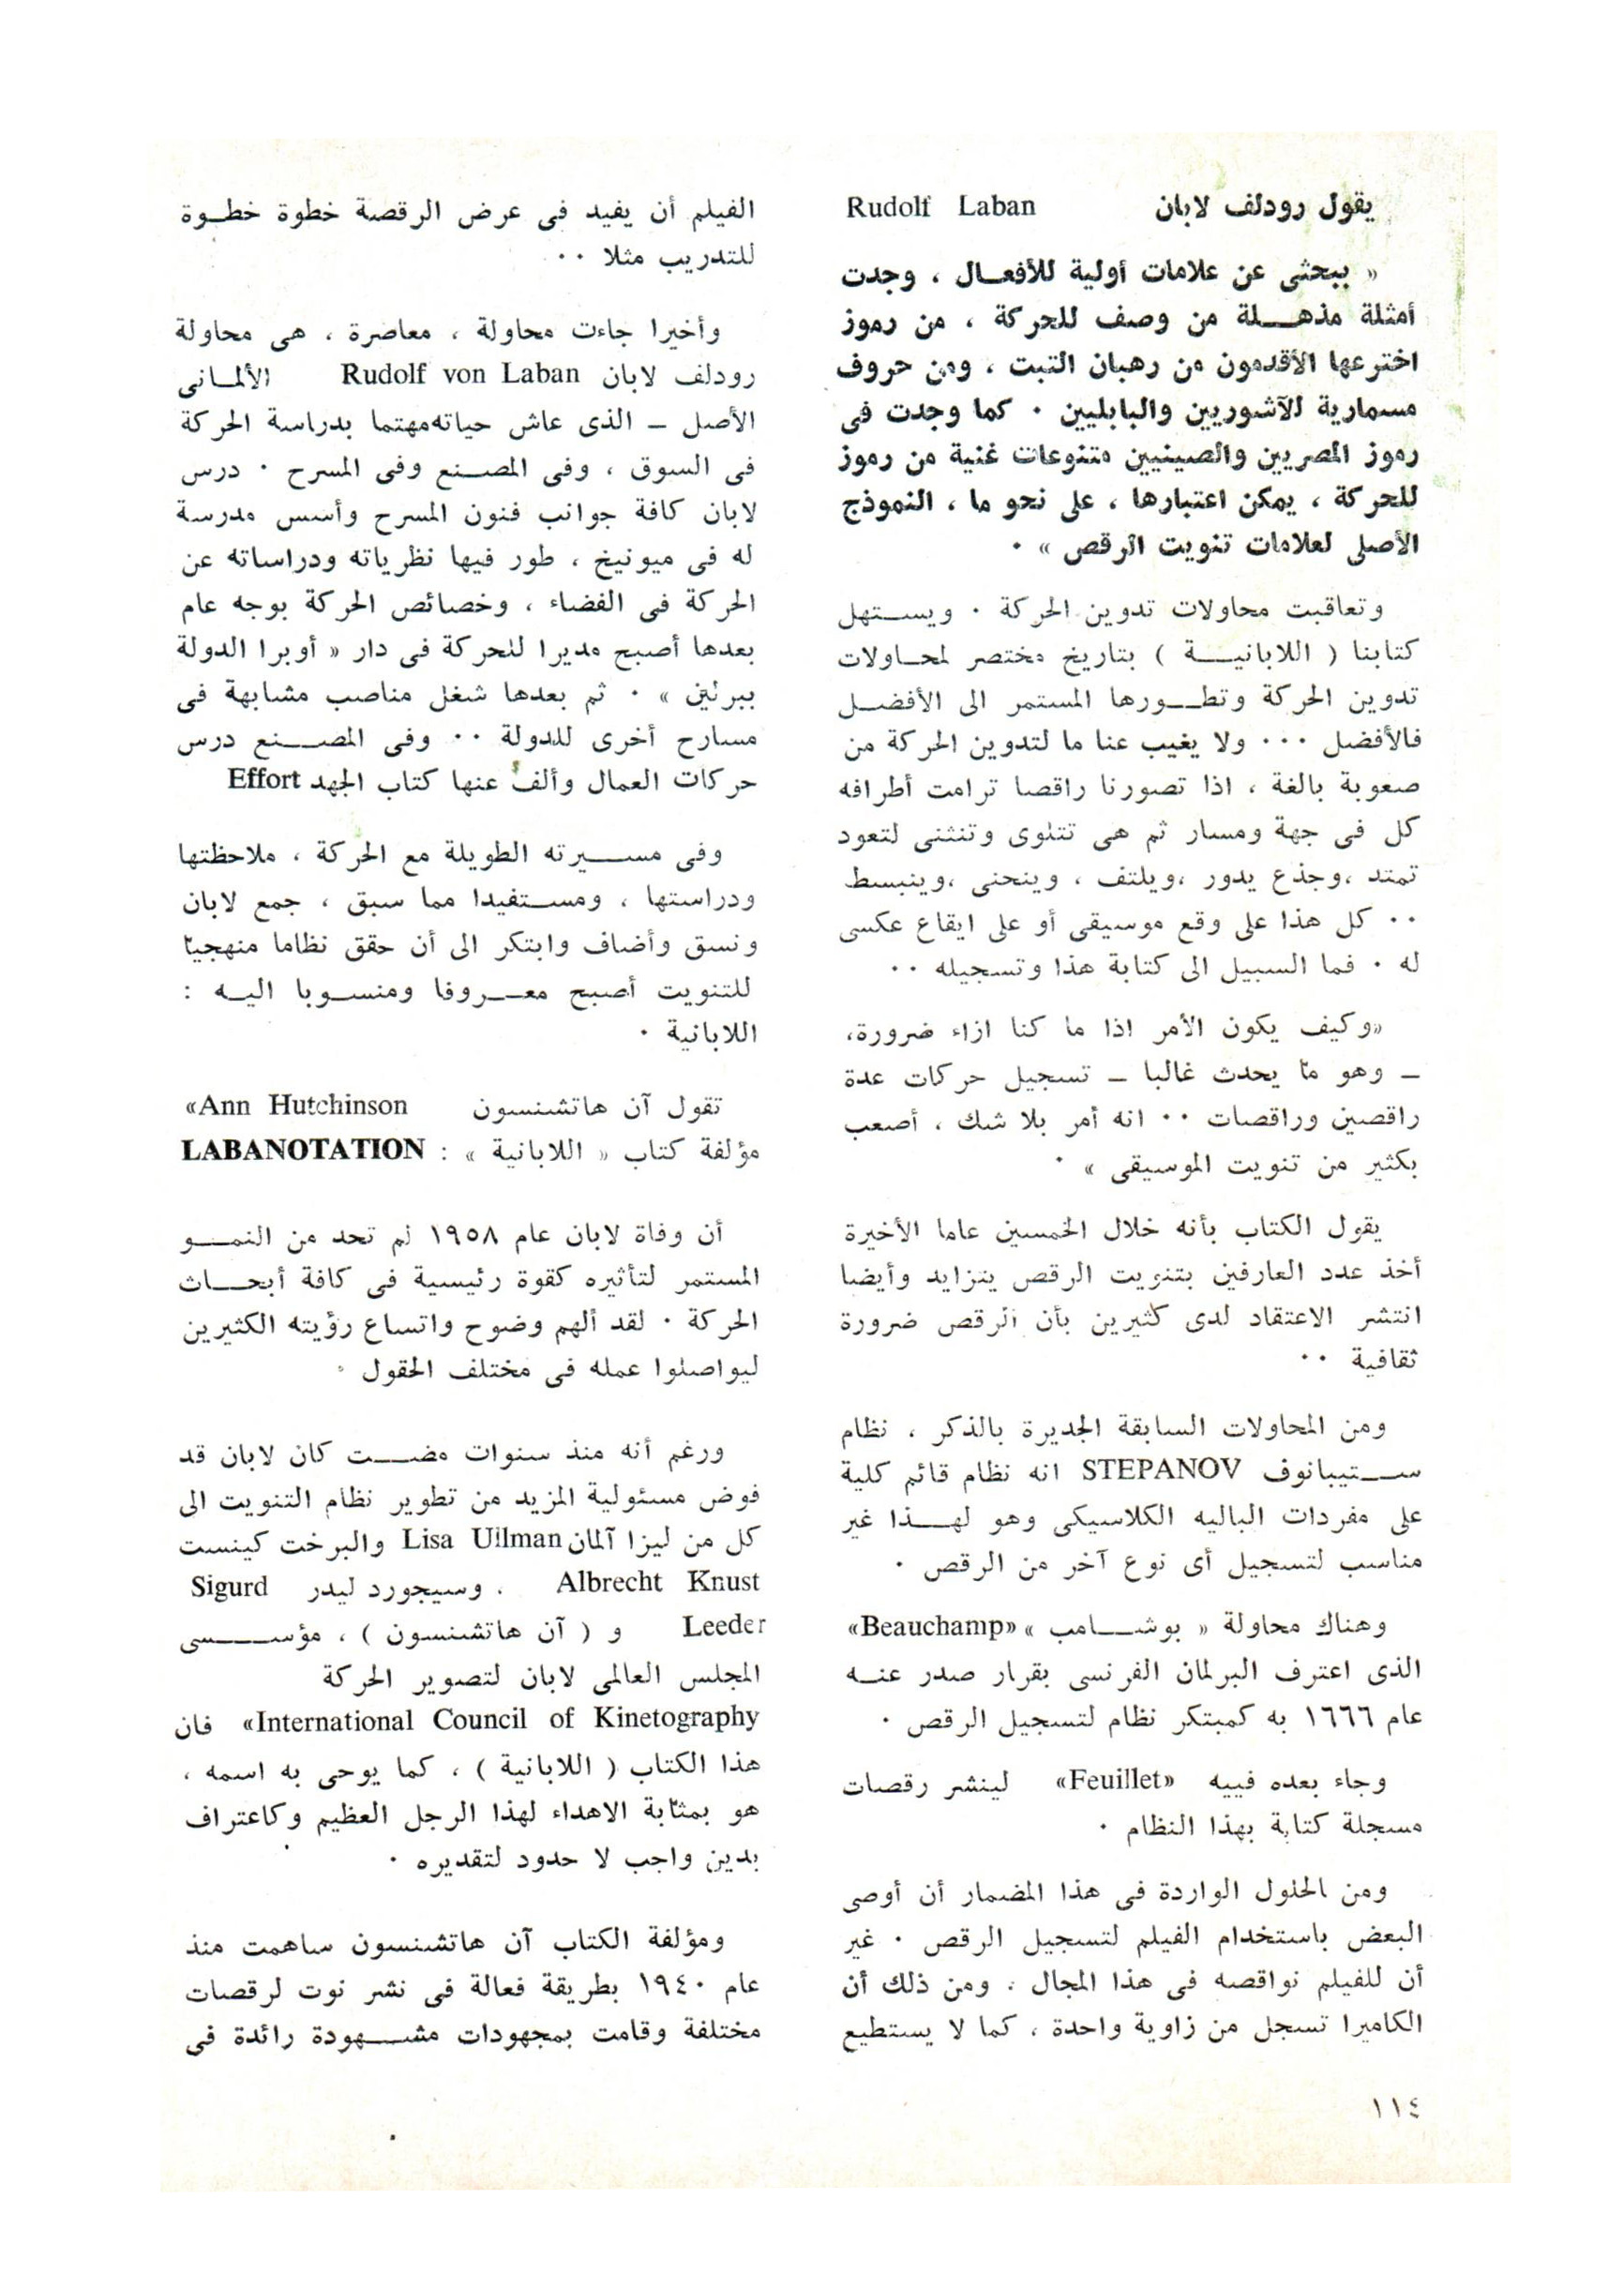 يقول رودلف لابان Rudolf Laban
« ببحثى عن علامات أولية للأفعـال ، وجدت
أمثلة مذهــلة من وصف للحركة ، من رموز
اخترعها الأقدمون من رهبان التبت ، ومن حروف
مسمارية للآشوريين والبابليين ٠ كما وجدت فى
رموز المصريين والصينيين متنوعات غنية من رموز
للحركة ، يمكن اعتبارها ، على نحو ما ، النموذج
الأصلى لعلامات تنويت الرقص » ٠
وتعاقبت محاولات تدوين الحركة ٠ ويسـتهل
كتابنا ( اللابانيــة ) بتاريخ مختصر لمحـاولات
تدوين الحركة وتطــورها المستمر الى الأفضـل
فالأفضل ٠٠٠ ولا يغيب عنا ما لتدوين الحركة من
صعوبة بالغة ، اذا تصورنا راقصا ترامت أطرافه
كل فى جهة ومسار ثم هى تتلوى وتنثنى لتعود
تمتد ،وجذع يدور ،ويلتف ، وينحنى ،وينبسط
٠٠ كل هذا على وقع موسيقى أو على ايقاع عكسى
له ٠ فما السبيل الى كتابة هذا وتسجيله ٠٠
«وكيف يكون الأمر اذا ما كنا ازاء ضرورة،
ـ وهو ما يحدث غالبا ـ تسجيل حركات عدة
راقصين وراقصات ٠٠ انه أمر بلا شك ، أصعب
بكثير من تنويت الموسيقى » ٠
يقول الكتاب بأنه خلال الخمسين عاما الأخيرة
أخذ عدد العارفين بتنويت الرقص يتزايد وأيضا
انتشر الاعتقاد لدى كثيرين بأن الرقص ضرورة
ثقافية ٠٠
ومن المحاولات السابقة الجديرة بالذكر ، نظام
ســتيبانوف STEPANOV انه نظام قائم كلية
على مفردات الباليه الكلاسيكى وهو لهــذا غير
مناسب لتسجيل أى نوع آخر من الرقص ٠
وهناك محاولة « بوشــامب » «Beauchamp»
الذى اعترف البرلمان الفرنسى بقرار صدر عنـه
عام ١٦٦٦ به كمبتكر نظام لتسجيل الرقص ٠
وجاء بعده فييه «Feuillet» لينشر رقصات
مسجلة كتابة بهذا النظام ٠
ومن الحلول الواردة فى هذا المضمار أن أوصى
البعض باستخدام الفيلم لتسجيل الرقص ٠ غير
أن للفيلم نواقصه فى هذا المجال ، ومن ذلك أن
الكاميرا تسجل من زاوية واحدة ، كما لا يستطيع
الفيلم أن يفيد فى عرض الرقصة خطوة خطـوة
للتدريب مثلا ٠٠
وأخيرا جاءت محاولة ، معاصرة ، هى محاولة
رودلف لابان Rudolf von Laban الألمـانى
الأصل ـ الذى عاش حياته مهتما بدراسة الحركة
فى السوق ، وفى المصـنع وفى المسرح ٠ درس
لابان كافة جوانب فنون المسرح وأسس مدرسة
له فى ميونيخ ، طور فيها نظرياته ودراساته عن
الحركة فى الفضاء ، وخصائص الحركة بوجه عام
بعدها أصبح مديرا للحركة فى دار « أوبرا الدولة
ببرلين » ٠ ثم بعدها شغل مناصب مشابهة فى
مسارح أخرى للدولة ٠٠ وفى المصــنع درس
حركات العمال وألف عنها كتاب الجهد Effort
وفى مســيرته الطويلة مع الحركة ، ملاحظتها
ودراستها ، ومسـتفيدا مما سبق ، جمع لابان
ونسق وأضاف وابتكر الى أن حقق نظاما منهجيا
للتنويت أصبح معــروفا ومنسـوبا اليـه :
اللابانية ٠
تقول آن هاتشنسون Ann Hutchinson»
مؤلفة كتاب « اللابانية » : LABANOTATION
أن وفاة لابان عام ١٩٥٨ لم تحد من النمــو
المستمر لتأثيره كقوة رئيسية فى كافة أبحـاث
الحركة ٠ لقد ألهم وضوح واتساع رؤيته الكثيرين
ليواصلوا عمله فى مختلف الحقول ٠
ورغم أنه منذ سنوات مضــت كان لابان قد
فوض مسئولية المزيد من تطوير نظام التنويت الى
كل من ليزا آلمان Lisa Ullman والبرخت كينست
Albrecht Knust ، وسيجورد ليدر Sigurd
Leeder و ( آن هاتشنسون ) ، مؤســسى
المجلس العالمى لابان لتصوير الحركة
International Council of Kinetography» فان
هذا الكتاب ( اللابانية ) ، كما يوحى به اسمه ،
هو بمثابة الاهداء لهذا الرجل العظيم وكاعتراف
بدين واجب لا حدود لتقديره ٠
ومؤلفة الكتاب آن هاتشنسون ساهمت منذ
عام ١٩٤٠ بطريقة فعالة فى نشر نوت لرقصات
مختلفة وقامت بمجهودات مشــهودة رائدة فى
١١٤